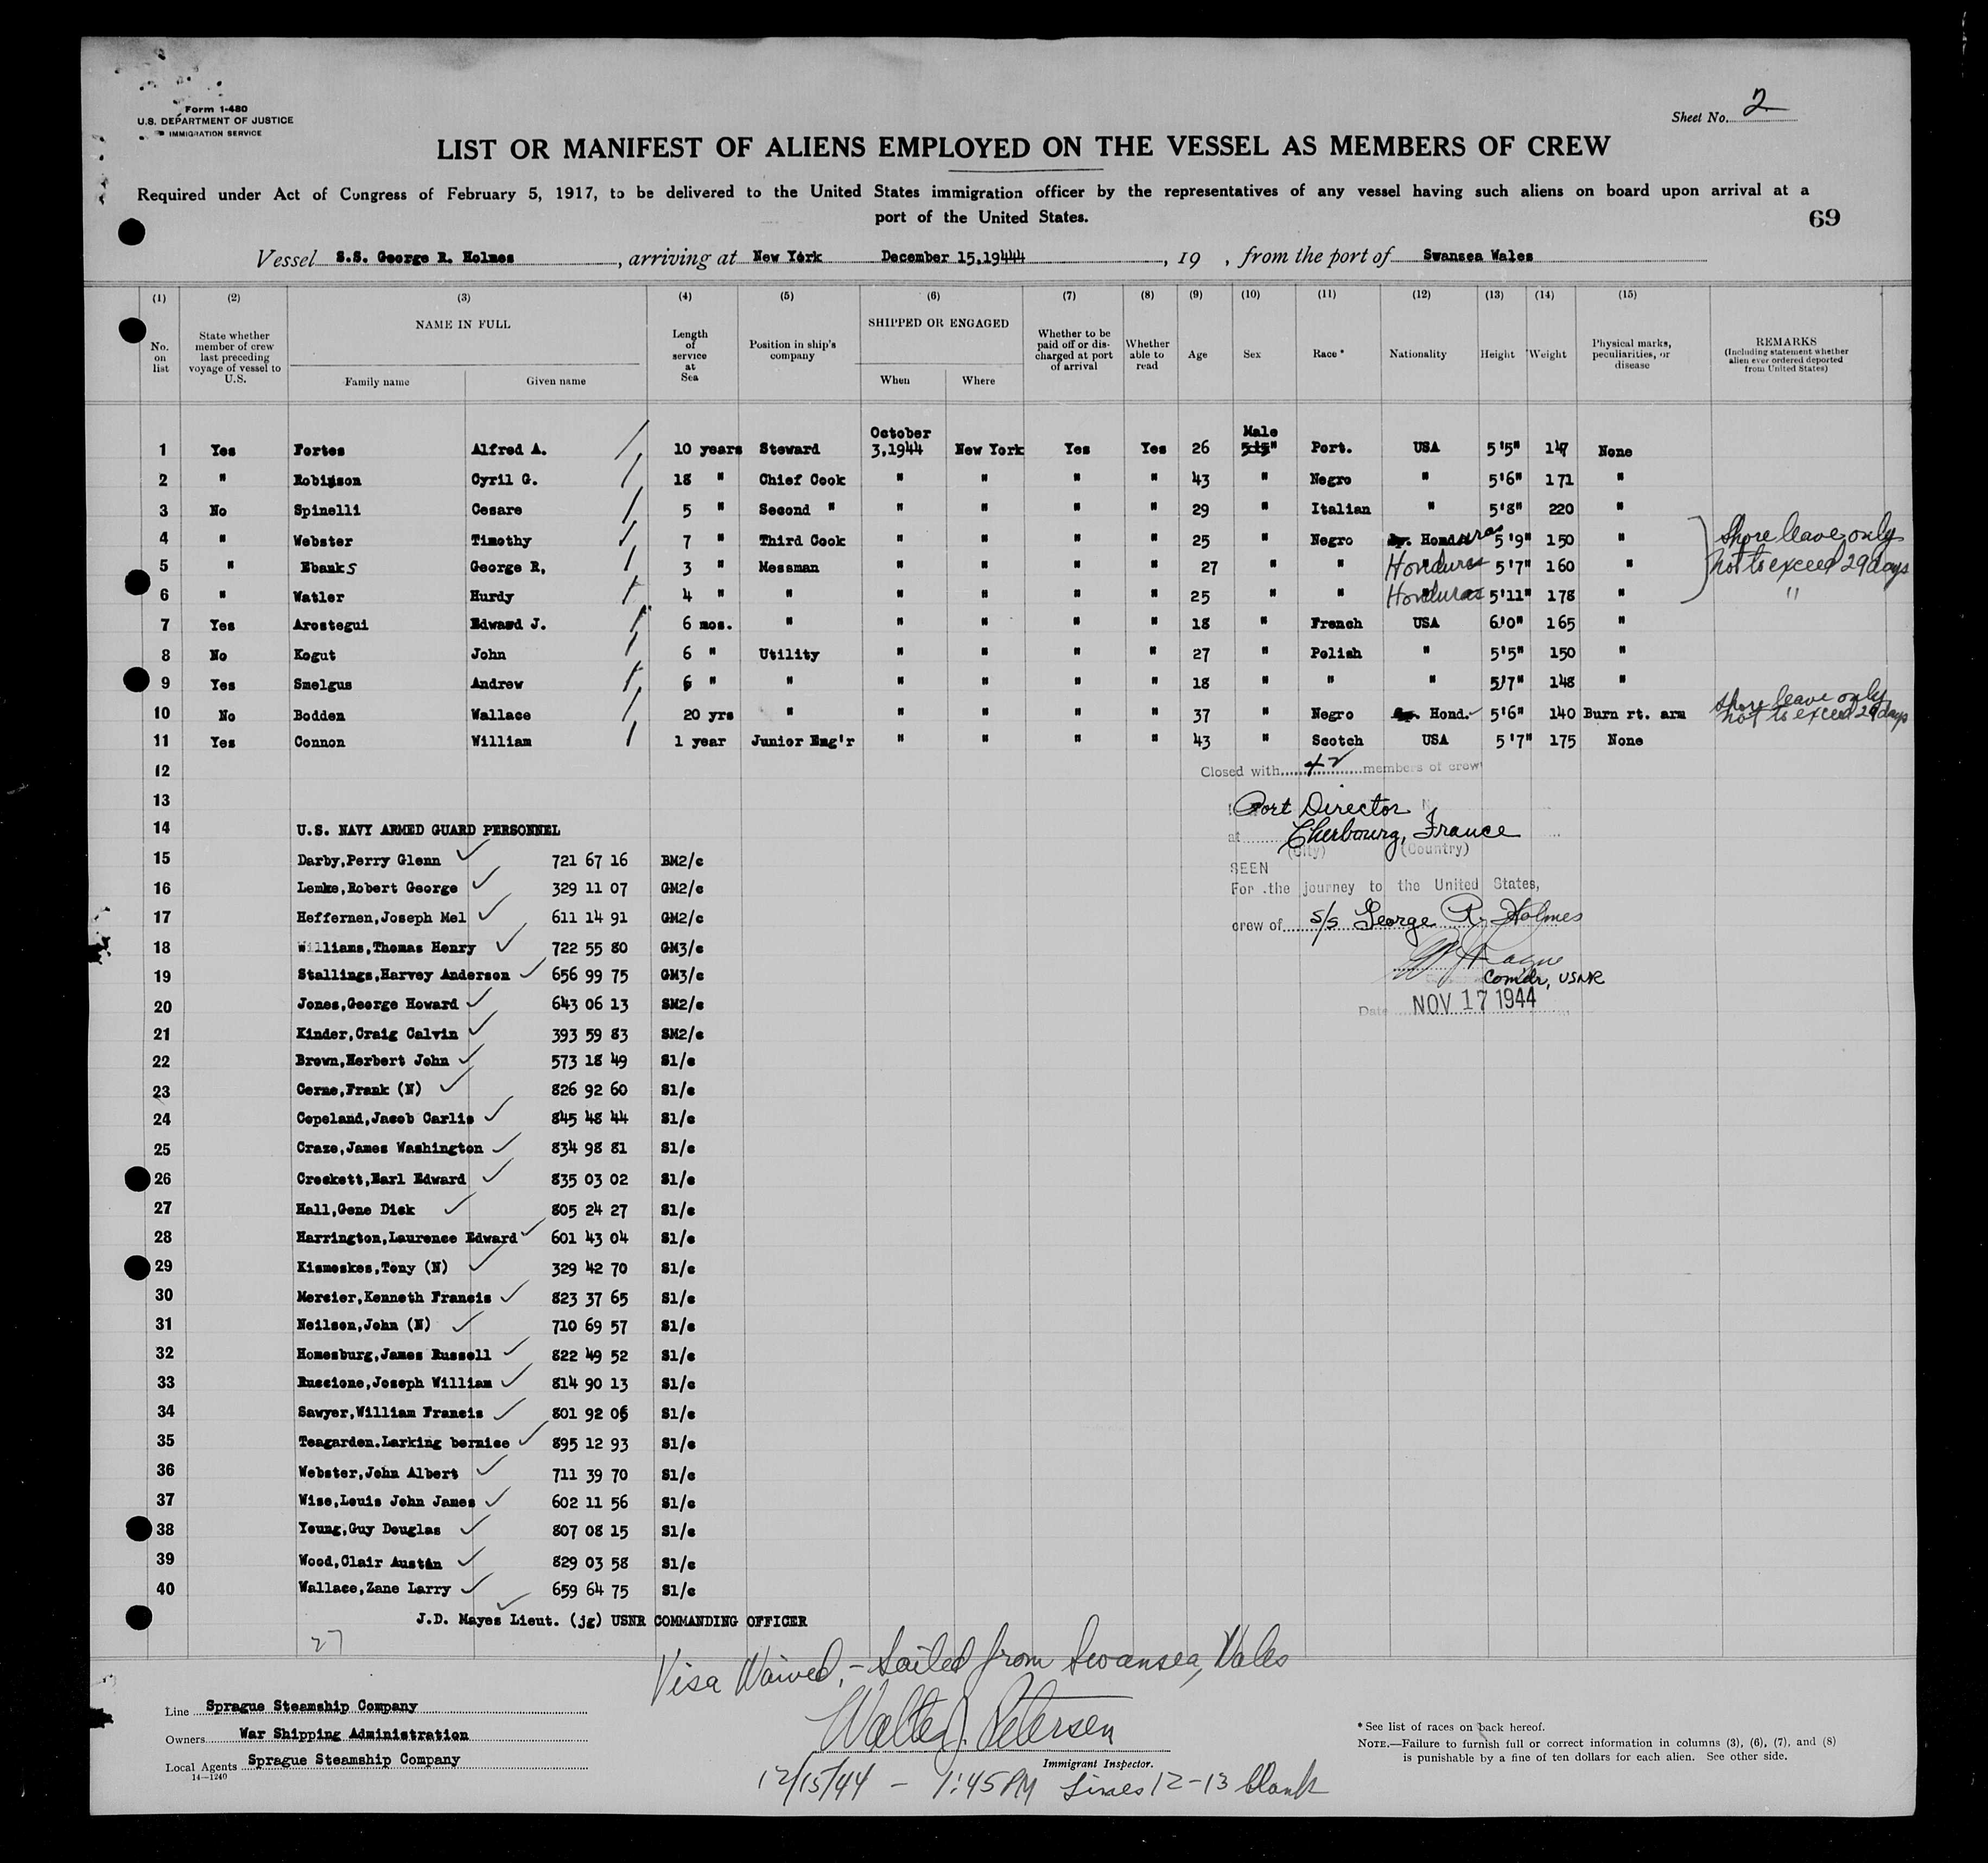 Form 1-480
U.S. DEPARTMENT OF JUSTICE
IMMIGRATION SERVICE
Sheet No. 2
LIST OR MANIFEST OF ALIENS EMPLOYED ON THE VESSEL AS MEMBERS OF CREW
Required under Act of Congress of February 5, 1917, to be delivered to the United States immigration officer by the representatives of any vessel having such aliens on board upon arrival at a
port of the United States.
69
Vessel S.S. George R. Holmes, arriving at New York December 15,1944, 19 , from the port of Swansea Wales
(1) (2) (3) (4) (5) (6) (7) (8) (9) (10) (11) (12) (13) (14) (15)
No. on list State whether member of crew last preceding voyage of vessel to U.S. NAME IN FULL Family name Given name Length of service at Sea Position in ship's company SHIPPED OR ENGAGED When Where Whether to be paid off or discharged at port of arrival Whether able to read Age Sex Race* Nationality Height Weight Physical marks, peculiarities, or disease REMARKS (Including statement whether alien ever ordered deported from United States)
1 Yes Fortes Alfred A. 10 years Steward October 3,1944 New York Yes Yes 26 Male Port. USA 5'5" 147 None
2 " Robinson Cyril G. 18 " Chief Cook " " " " 43 " Negro " 5'6" 171 "
3 No Spinelli Cesare 5 " Second " " " " " 29 " Italian " 5'8" 220 "
4 " Webster Timothy 7 " Third Cook " " " " 25 " Negro Honduras 5'9" 150 " Shore leave only
5 " Ebanks George R, 3 " Messman " " " " 27 " " Honduras 5'7" 160 " not to exceed 29 days
6 " Watler Hurdy 4 " " " " " " 25 " " Honduras 5'11" 178 " "
7 Yes Arostegui Edward J. 6 mos. " " " " " 18 " French USA 6'0" 165 "
8 No Kogut John 6 " Utility " " " " 27 " Polish " 5'5" 150 "
9 Yes Smelgus Andrew 6 " " " " " " 18 " " " 5'7" 148 "
10 No Bodden Wallace 20 yrs " " " " " 37 " Negro Hond. 5'6" 140 Burn rt. arm Shore leave only not to exceed 29 days
11 Yes Connon William 1 year Junior Eng'r " " " " 43 " Scotch USA 5'7" 175 None
12 Closed with 42 members of crew
13 Port Director
14 U.S. NAVY ARMED GUARD PERSONNEL at Cherbourg, France
(City) (Country)
15 Darby,Perry Glenn 721 67 16 BM2/c
SEEN
16 Lemke,Robert George 329 11 07 GM2/c For the journey to the United States,
17 Heffernen,Joseph Mel 611 14 91 GM2/c crew of s/s George R. Holmes
18 Williams,Thomas Henry 722 55 80 GM3/c
19 Stallings,Harvey Anderson 656 99 75 GM3/c Comdr, USNR
20 Jones,George Howard 643 06 13 SM2/c Date NOV 17 1944
21 Kinder,Craig Calvin 393 59 83 SM2/c
22 Brown,Herbert John 573 18 49 S1/c
23 Cerne,Frank (N) 826 92 60 S1/c
24 Copeland,Jacob Carlis 845 48 44 S1/c
25 Craze,James Washington 834 98 81 S1/c
26 Crockett,Earl Edward 835 03 02 S1/c
27 Hall,Gene Dick 805 24 27 S1/c
28 Harrington,Laurence Edward 601 43 04 S1/c
29 Kismeskes,Tony (N) 329 42 70 S1/c
30 Mercier,Kenneth Francis 823 37 65 S1/c
31 Neilsen,John (N) 710 69 57 S1/c
32 Homesburg,James Russell 822 49 52 S1/c
33 Ruscione,Joseph William 814 90 13 S1/c
34 Sawyer,William Francis 801 92 06 S1/c
35 Teagarden.Larking bernice 895 12 93 S1/c
36 Webster,John Albert 711 39 70 S1/c
37 Wise,Louis John James 602 11 56 S1/c
38 Young,Guy Douglas 807 08 15 S1/c
39 Wood,Clair Austin 829 03 58 S1/c
40 Wallace,Zane Larry 659 64 75 S1/c
J.D. Mayes Lieut. (jg) USNR COMMANDING OFFICER
27
Visa Waived, - Sailed from Swansea, Wales
Walter J. Petersen
Immigrant Inspector.
12/15/44 - 1:45 PM Lines 12-13 blank
Line Sprague Steamship Company
Owners War Shipping Administration
Local Agents Sprague Steamship Company
14-1240
* See list of races on back hereof.
NOTE.—Failure to furnish full or correct information in columns (3), (6), (7), and (8)
is punishable by a fine of ten dollars for each alien. See other side.